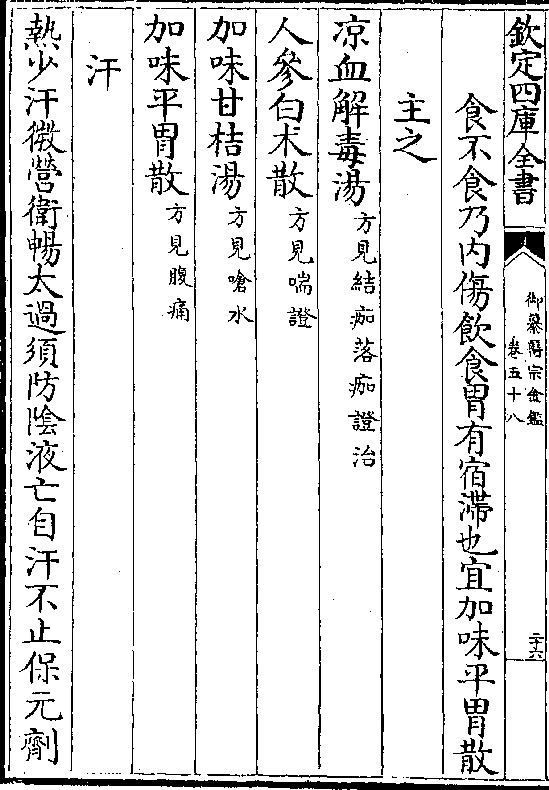 欽定四庫全書
御纂醫宗金鑑
卷五十八
二十六
食不食乃内傷飲食胃有宿滯也宜加味平胃散
主之
凉血解毒湯方見結痂落痂證治
人參白术散方見喘證
加味甘桔湯方見嗆水
加味平胃散方見腹痛
汗
熱少汗微營衛暢太過須防陰液亡自汗不止保元劑